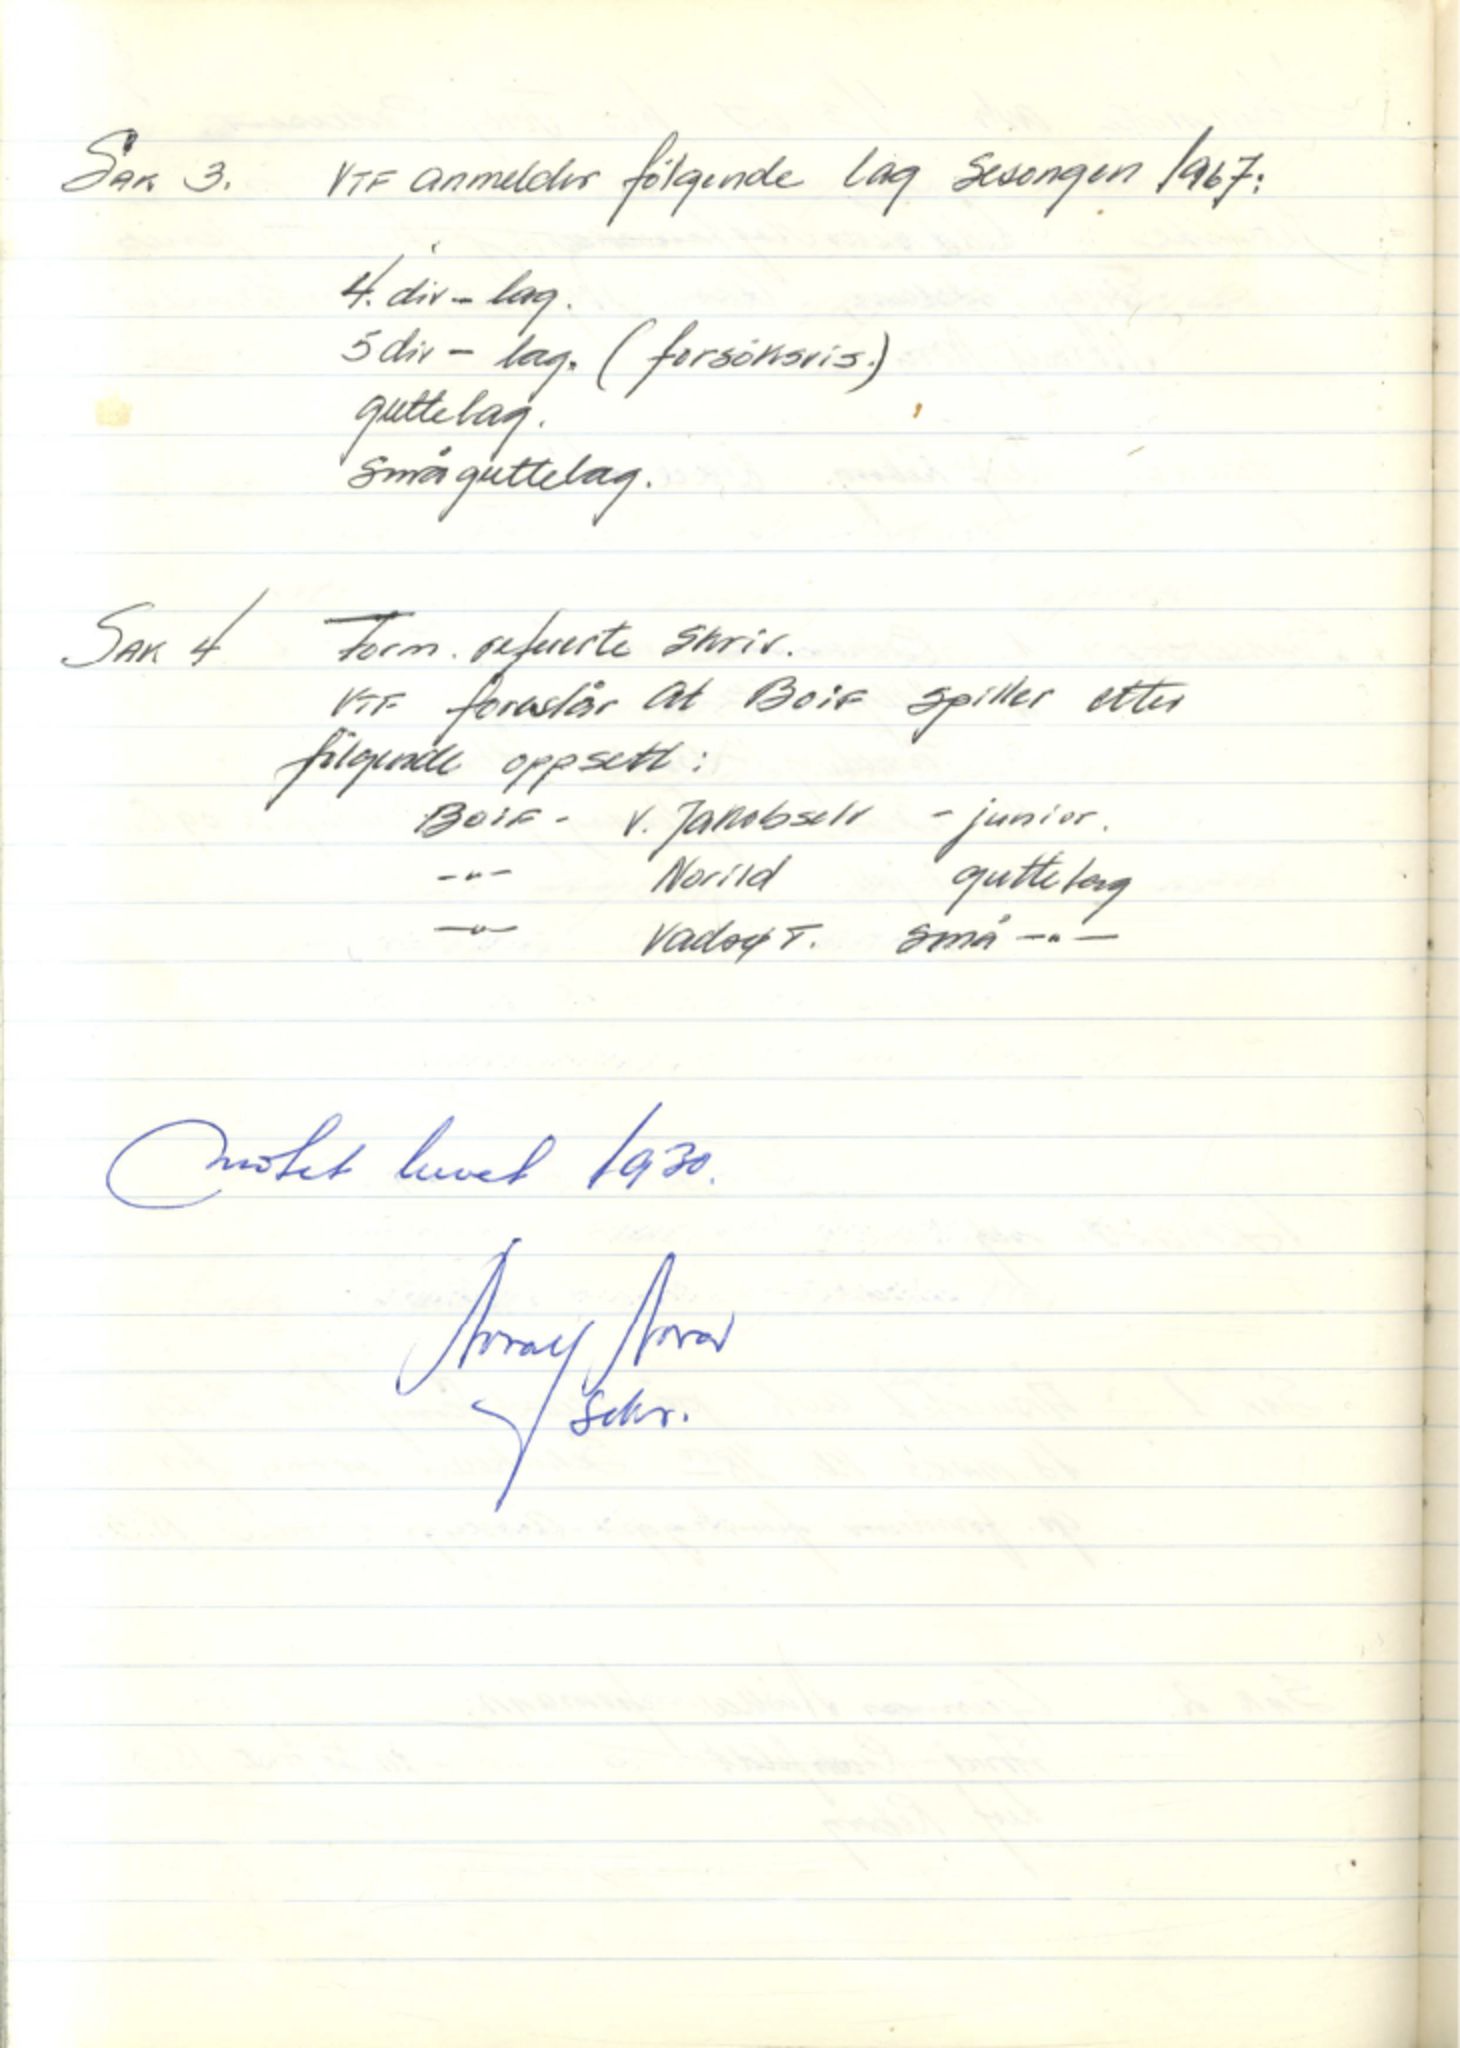 Sak 3. VTF anmelder følgende lag sesongen 1967:
4. div - lag.
5 div - lag. (forsøksvis.)
guttelag.
småguttelag.
Sak 4 Form. refererte skriv.
VTF foreslår at BOIF spiller etter
følgende oppsett:
BOIF - V. Jakobselv - junior.
-"- Norild guttelag
-"- Vadsø T. små -"-
Møtet hevet 1930.
Sekr.